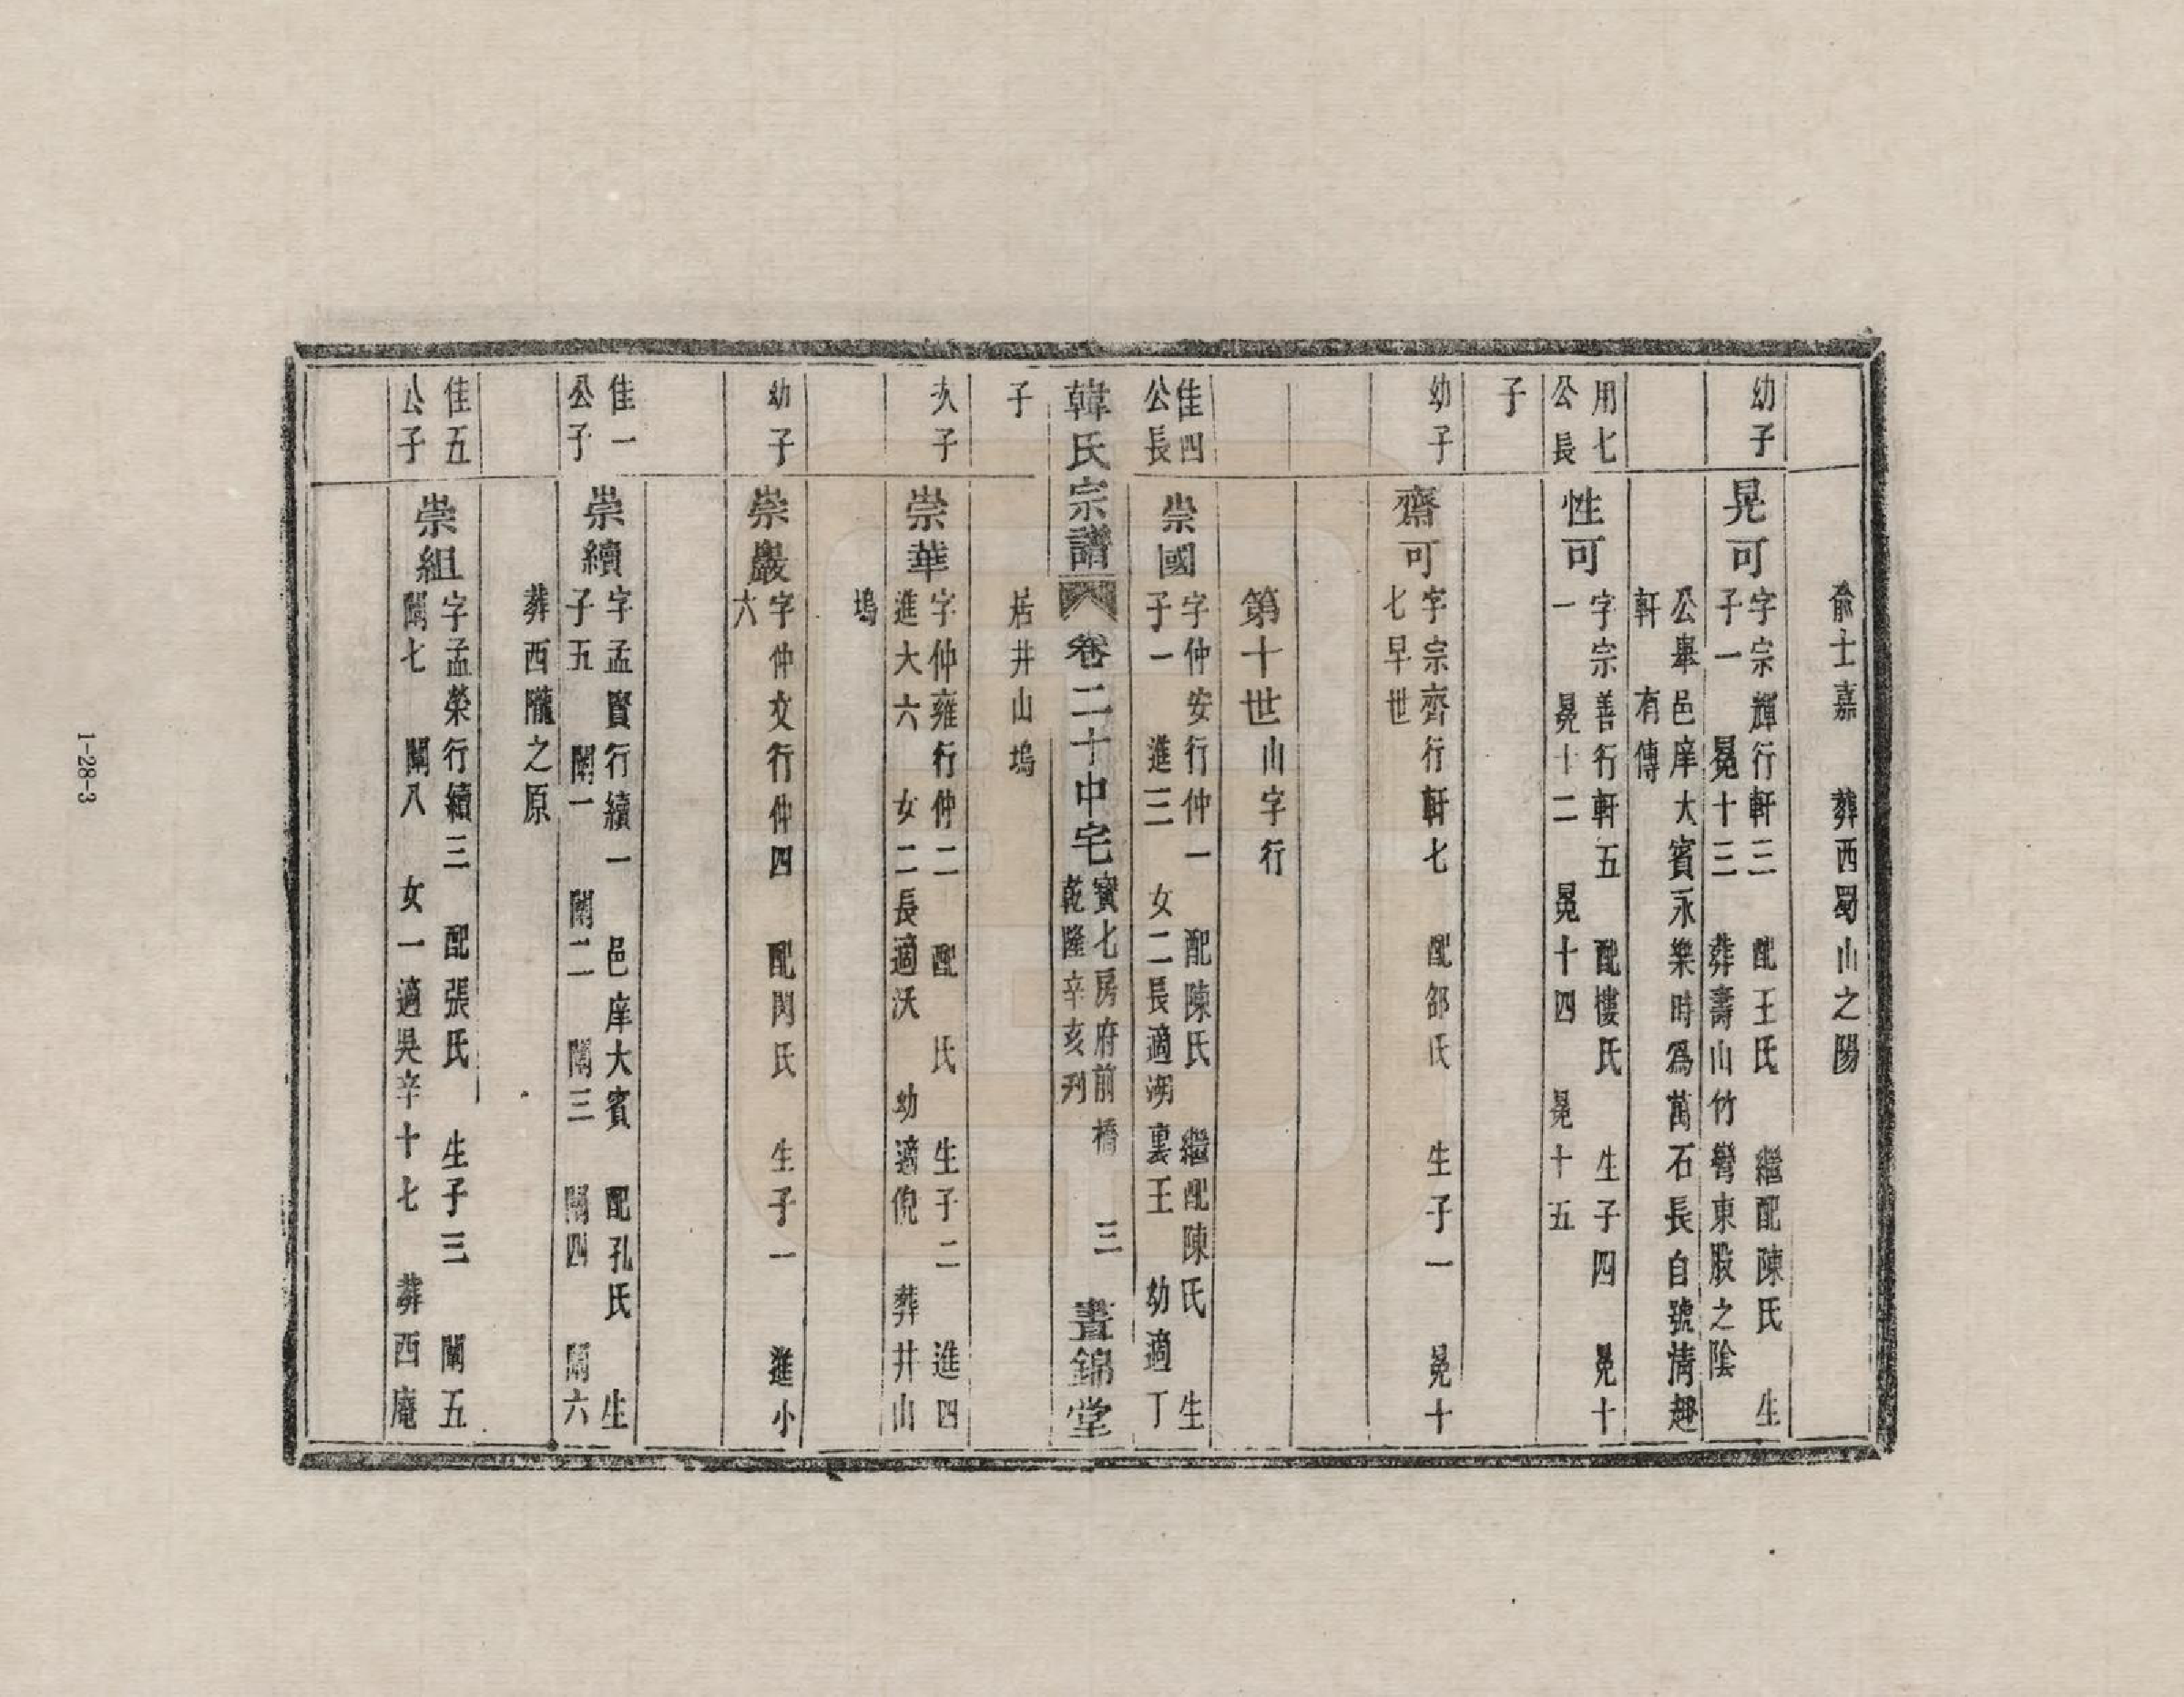 俞士嘉　葬西蜀山之陽
幼子
晃可
字宗輝行軒三　配王氏　繼配陳氏　生
子一　冕十三　葬壽山竹彎東股之陰
公舉邑庠大賓永樂時爲萬石長自號情趣
軒　有傳
用七
公長
子
性可
字宗善行軒五　配樓氏　生子四　冕十
一　冕十二　冕十四　冕十五
幼子
齊可
字宗齊行軒七　配邵氏　生子一　冕十
七早世
第十世山字行
佳四
公長
子
崇國
字仲安行仲一　配陳氏　繼配陳氏　生
子一　進三　女二長適湖裏王　幼適丁
韓氏宗譜
卷二十中宅
寶七房府前橋
乾隆辛亥刋
三
晝錦堂
居井山塢
次子
崇華
字仲雍行仲二　配　氏　生子二　進四
進大六　女二長適沃　幼適倪　葬井山
塢
幼子
崇巖
字仲文行仲四　配閔氏　生子一　進小
六
佳一
公子
崇續
字孟賢行續一　邑庠大賓　配孔氏　生
子五　闌一　闌二　闌三　闌四　闌六
葬西隴之原
佳五
公子
崇組
字孟榮行續三　配張氏　生子三　闌五
闌七　闌八　女一適吳辛十七　葬西庵
1-28-3